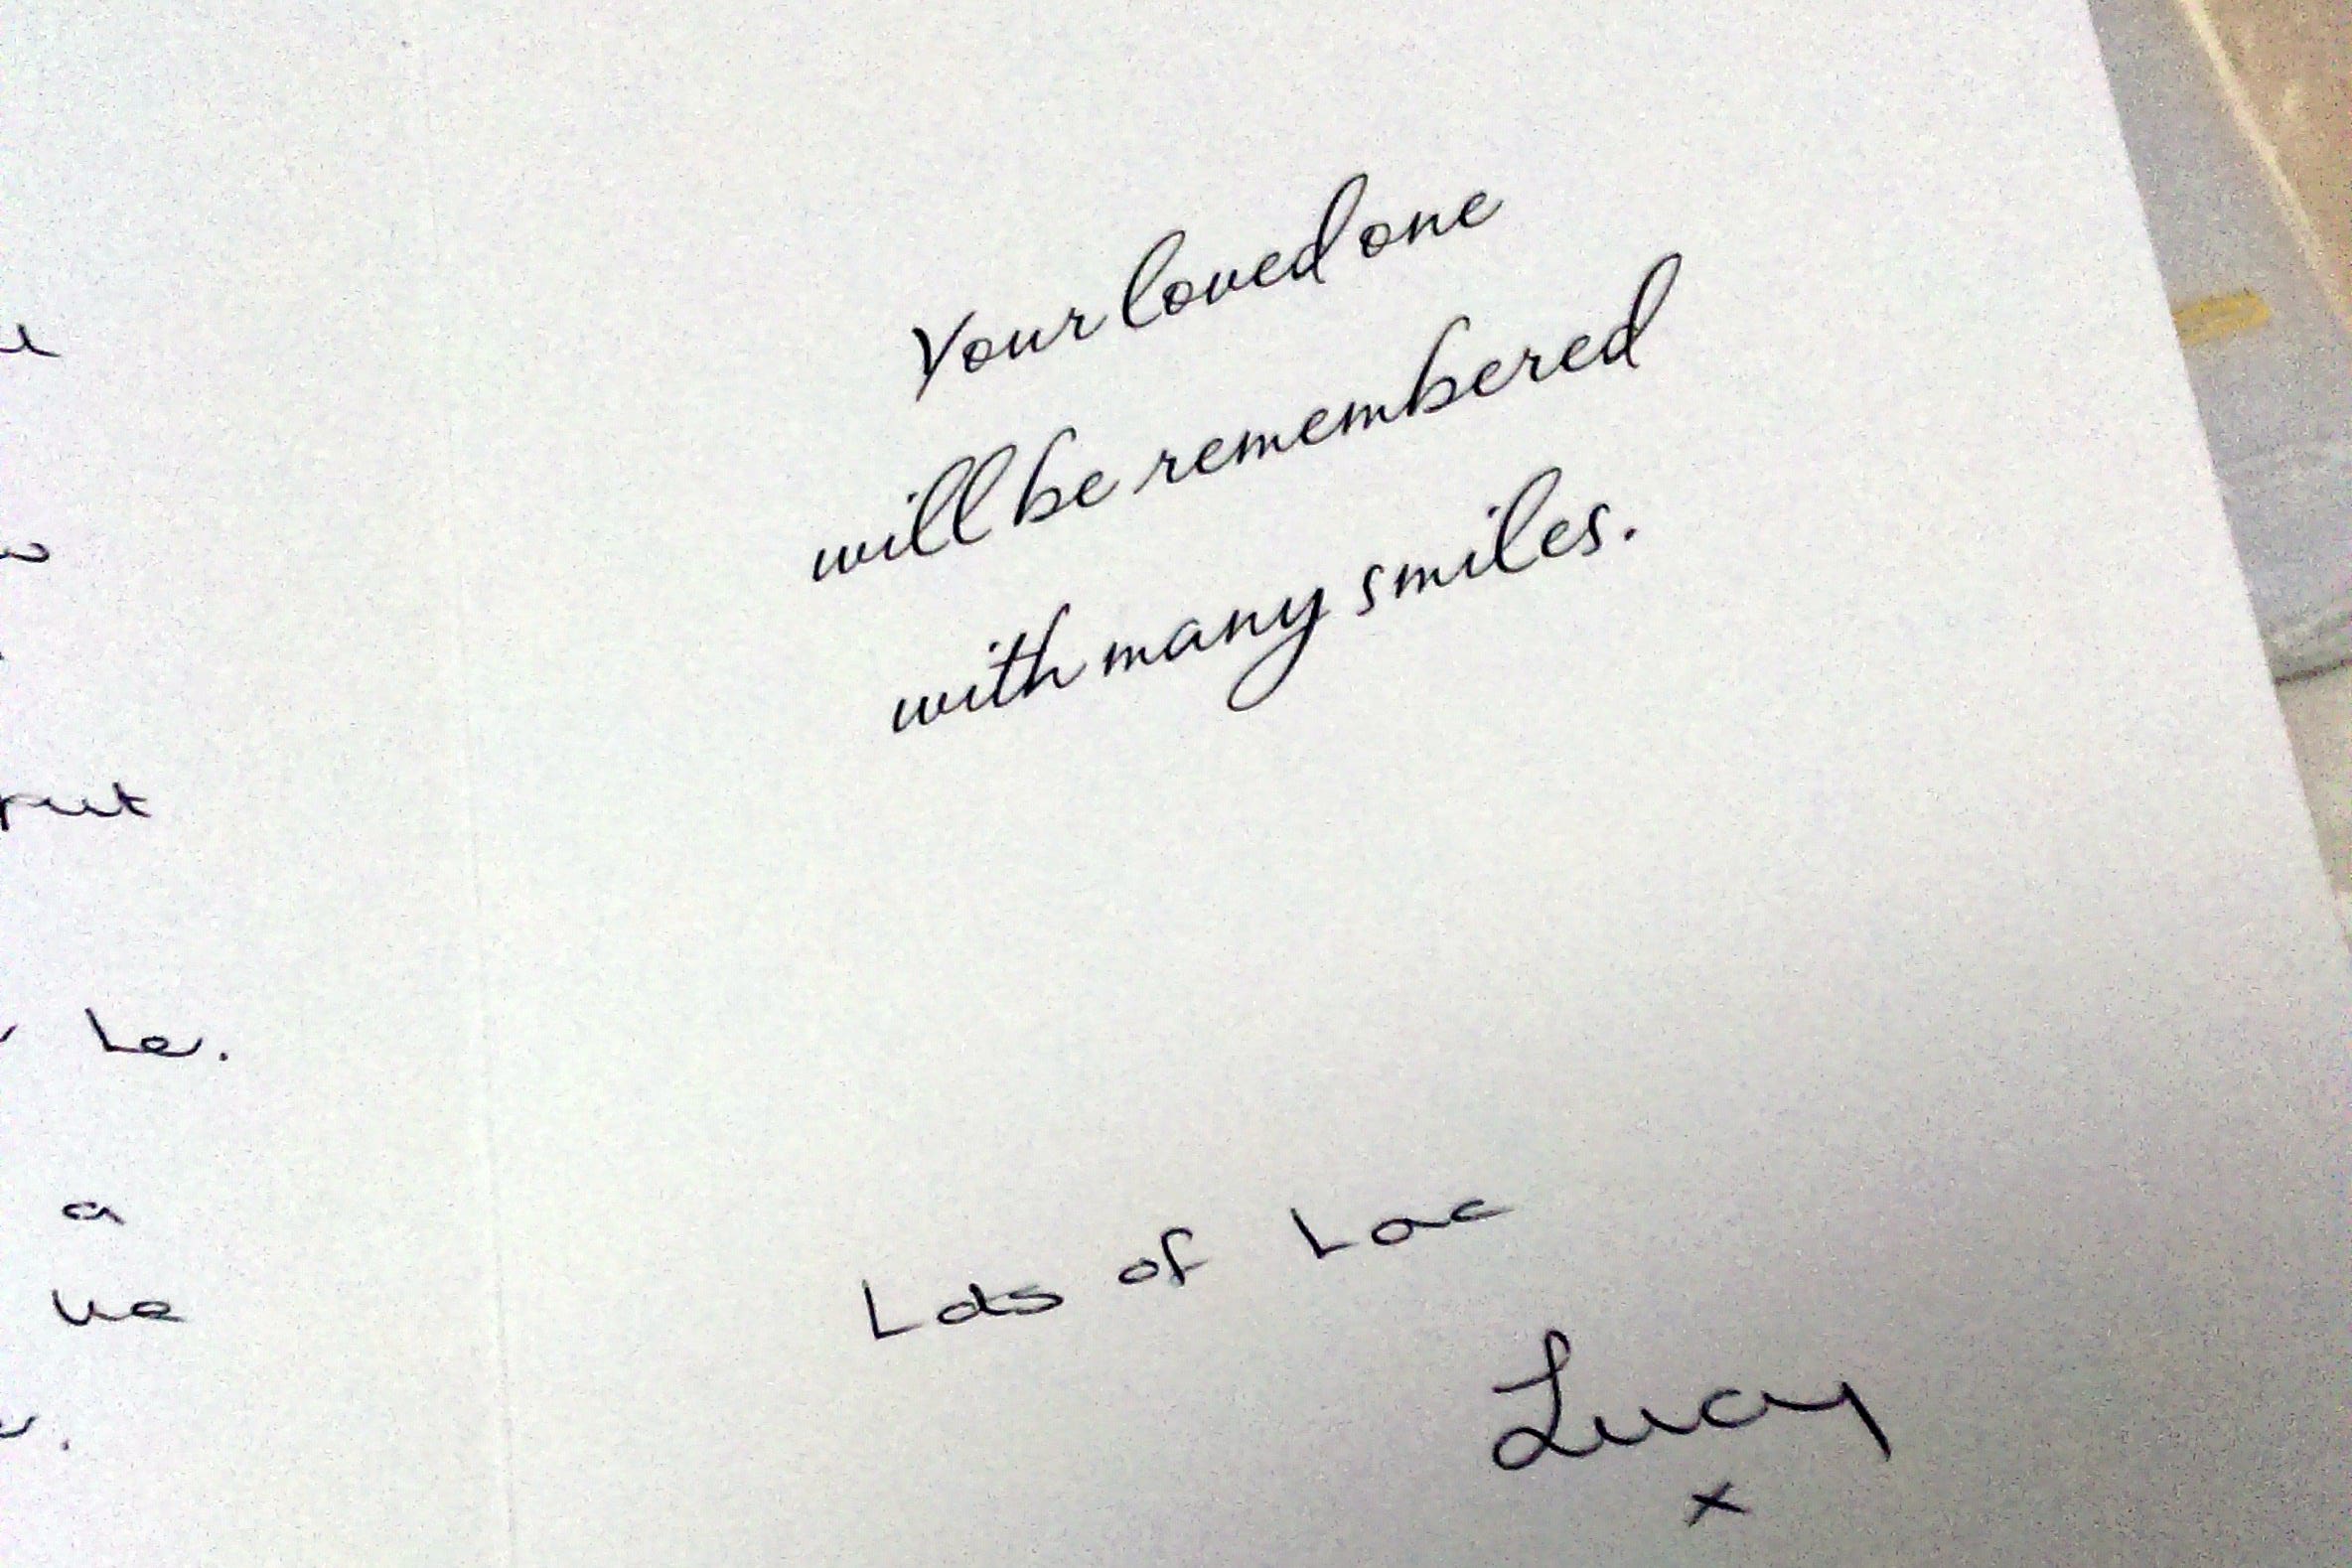 Your loved one
will be remembered
with many smiles.
a
Lots of Love
Lucy
x